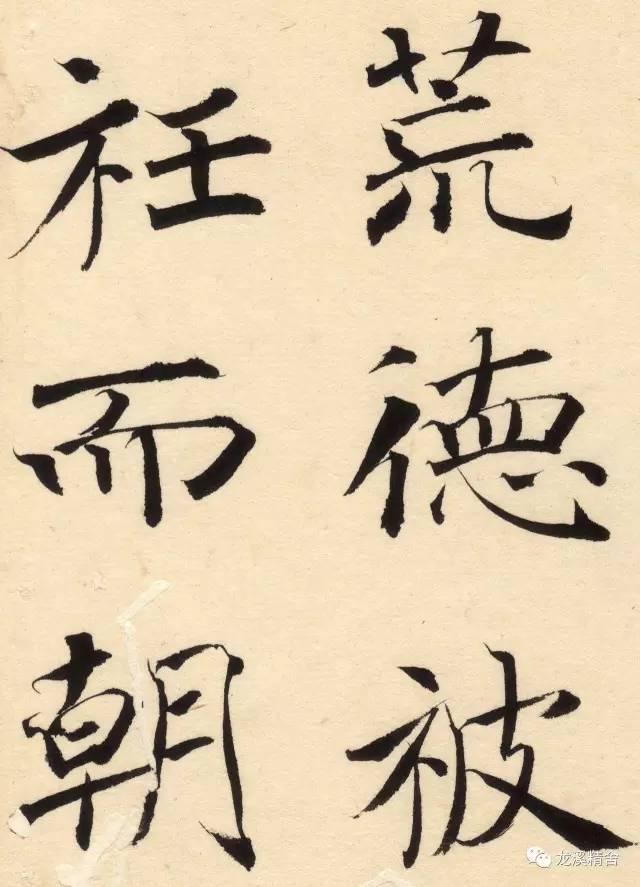 荒德被
衽而朝
龙溪精舍